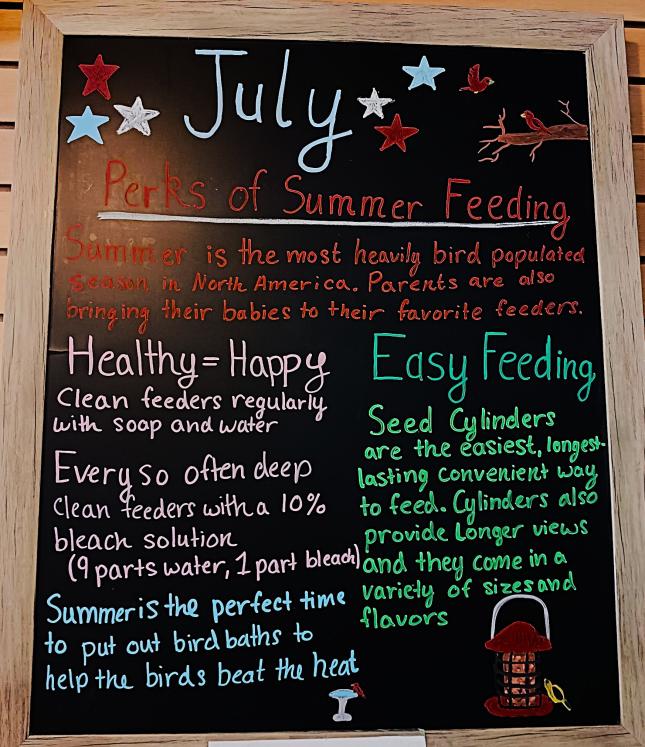 July
Perks of Summer Feeding
Summer is the most heavily bird populated
season in North America. Parents are also
bringing their babies to their favorite feeders.
Healthy = Happy
Clean feeders regularly
with soap and water
Every so often deep
clean feeders with a 10%
bleach solution
(9 parts water, 1 part bleach)
Summer is the perfect time
to put out bird baths to
help the birds beat the heat
Easy Feeding
Seed Cylinders
are the easiest, longest-
lasting convenient way
to feed. Cylinders also
provide longer views
and they come in a
variety of sizes and
flavors